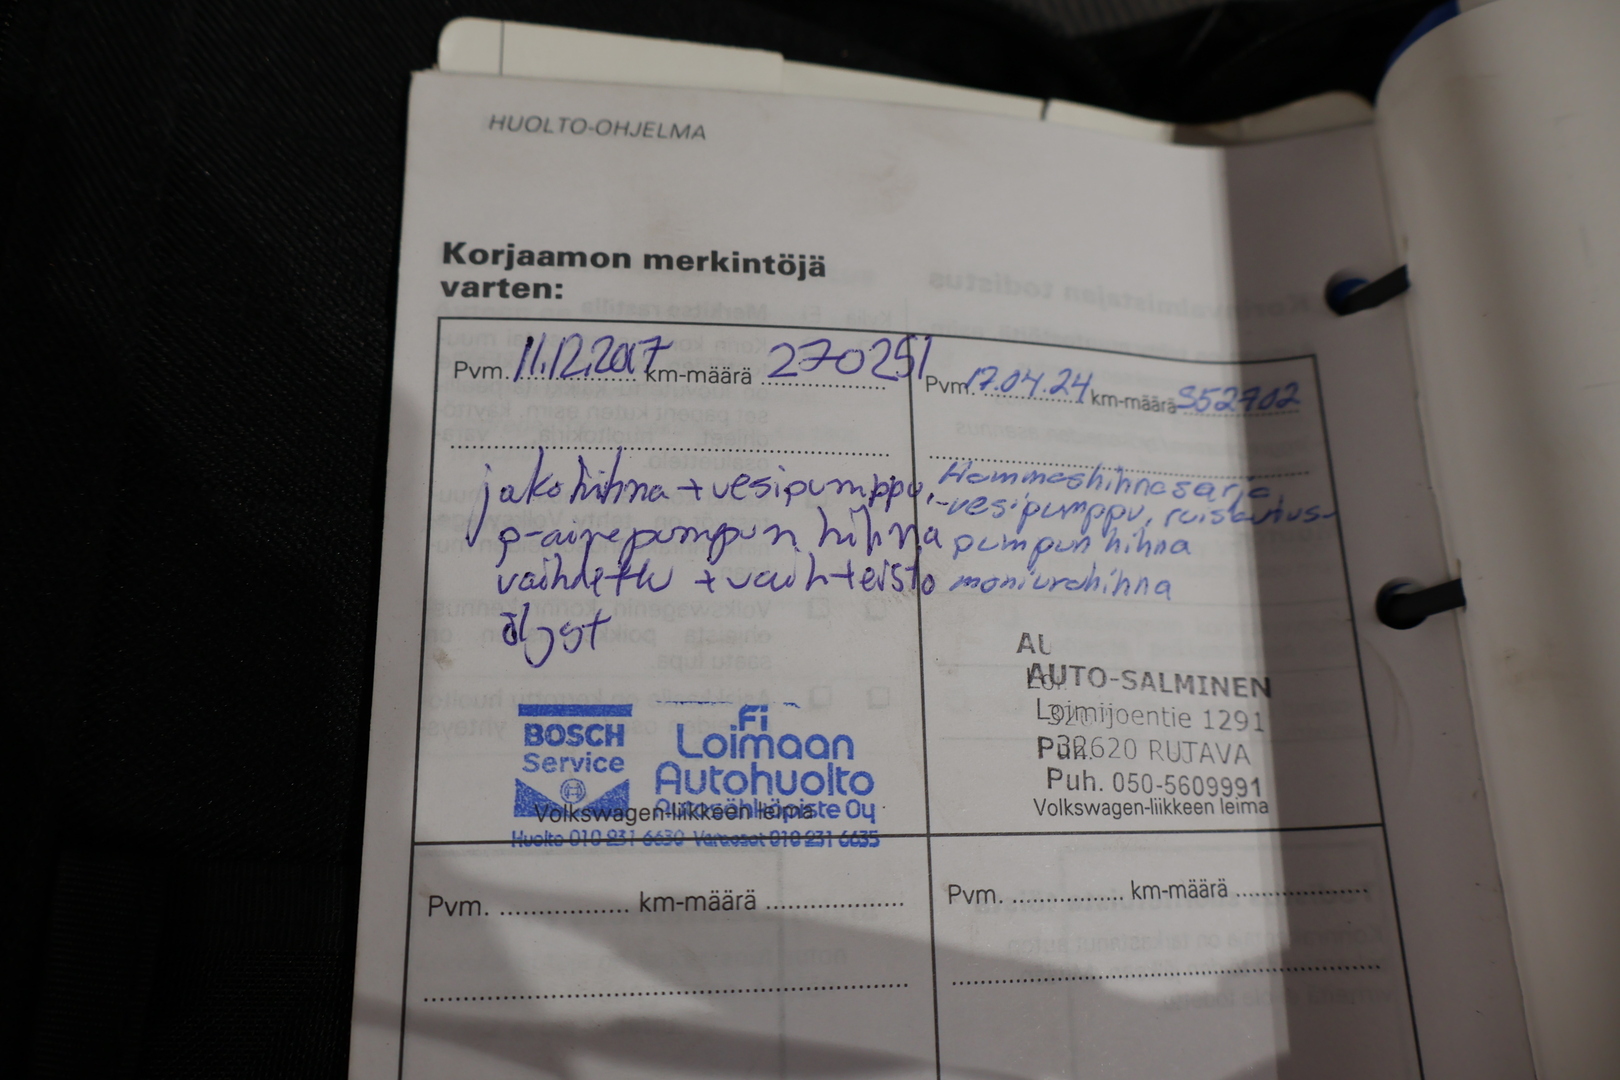 HUOLTO-OHJELMA
Korjaamon merkintöjä
varten:
Pvm. 11.12.2017 km-määrä 270251
jakohihna + vesipumppu,
p-ainepumpun hihna
vaihdettu + vaihteisto
öljyt
BOSCH
Service
Fi
Loimaan
Autohuolto
Autosähköpiste Oy
Volkswagen-liikkeen leima
Huolto 010 231 6630 Varaosat 010 231 6635
Pvm. 17.04.24 km-määrä 352702
Hammashihnasarja
-vesipumppu, ruiskutus-
pumpun hihna
moniurahihna
AUTO-SALMINEN
Loimijoentie 1291
32620 RUTAVA
Puh. 050-5609991
Volkswagen-liikkeen leima
Pvm. km-määrä
Pvm. km-määrä